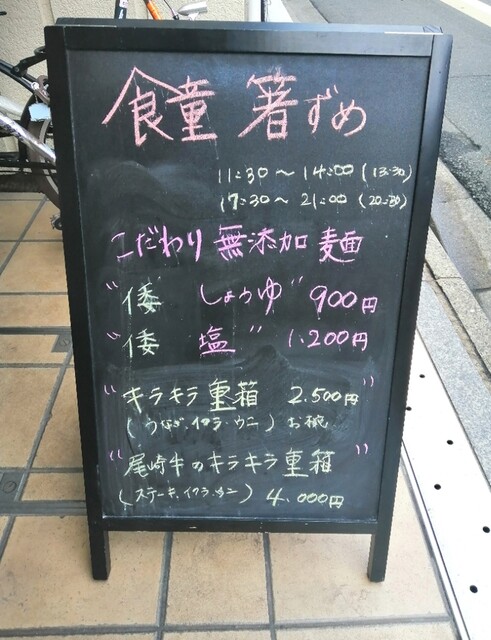 食童 箸ずめ
11:30～14:00(13:30)
17:30～21:00(20:30)
こだわり 無添加 麺
"倭 しょうゆ" 900円
"倭 塩" 1.200円
"キラキラ重箱 2.500円"
(うなぎ.イクラ.ウニ) お椀
"尾崎牛のキラキラ重箱"
(ステーキ.イクラ.ウニ) 4.000円